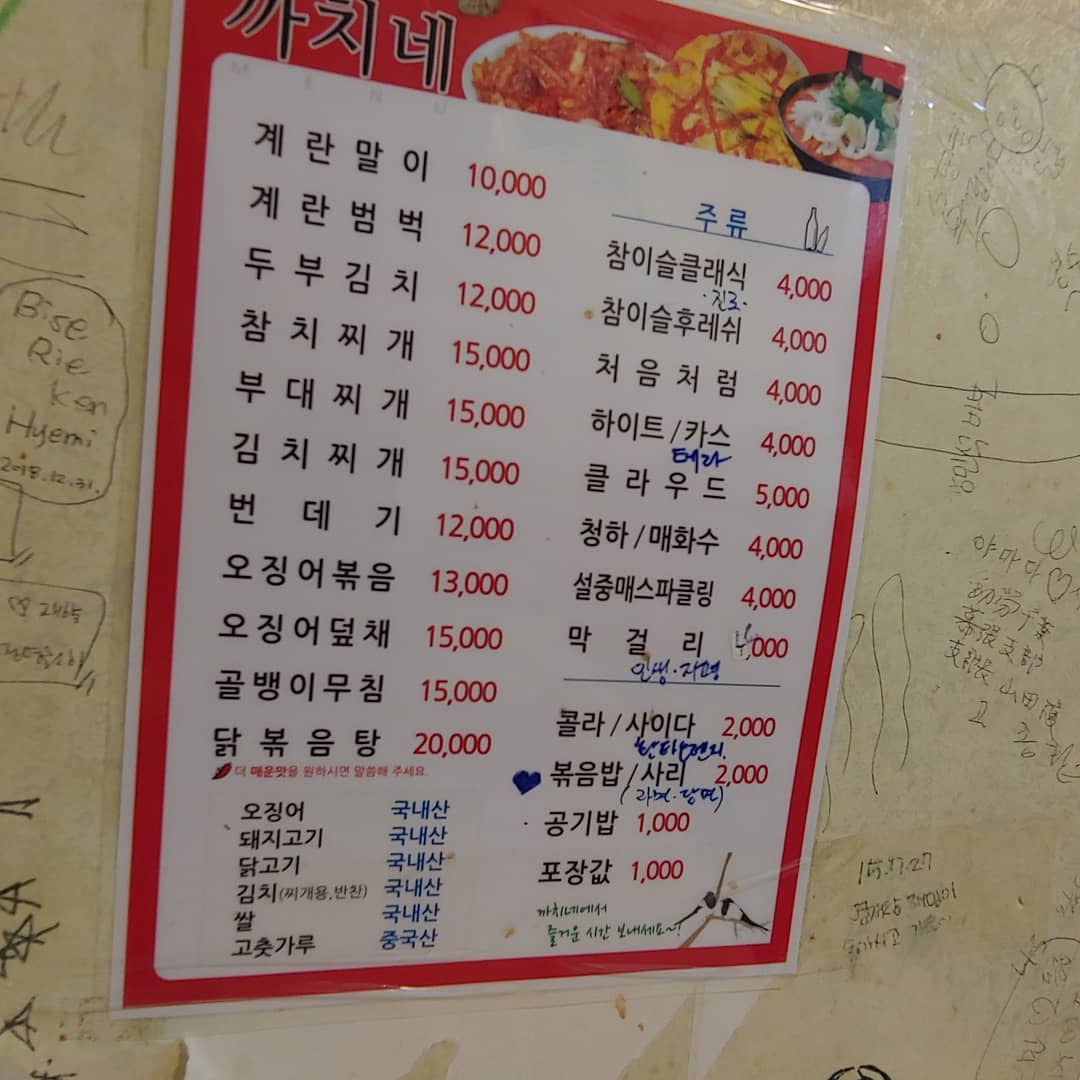 까치네
MENU
계란말이 10,000
계란범벅 12,000
두부김치 12,000
참치찌개 15,000
부대찌개 15,000
김치찌개 15,000
번데기 12,000
오징어볶음 13,000
오징어덮채 15,000
골뱅이무침 15,000
닭볶음탕 20,000
더 매운맛을 원하시면 말씀해 주세요.
오징어 국내산
돼지고기 국내산
닭고기 국내산
김치(찌개용,반찬) 국내산
쌀 국내산
고춧가루 중국산
주류
참이슬클래식 4,000
·진로·
참이슬후레쉬 4,000
처음처럼 4,000
하이트/카스 4,000
테라
클라우드 5,000
청하/매화수 4,000
설중매스파클링 4,000
막걸리 4,000
인생·지평
콜라/사이다 2,000
환타오렌지
볶음밥/사리 2,000
(라면·당면)
공기밥 1,000
포장값 1,000
까치네에서
즐거운 시간 보내세요~!
Bise
Rie
Ken
Hyemi
2018.12.31.
야마다♡
動労千葉
幕張支部
支部長 山田